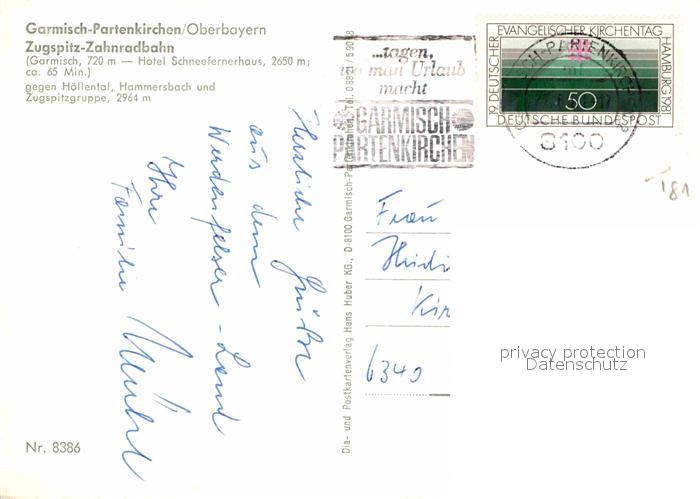 Garmisch-Partenkirchen/Oberbayern
Zugspitz-Zahnradbahn
(Garmisch, 720 m — Hotel Schneefernerhaus, 2650 m;
ca. 65 Min.)
gegen Höllental, Hammersbach und
Zugspitzgruppe, 2964 m
Herzliche Grüße
aus dem
Werdenfelser-Land
Ihre
Familie
Nr. 8386
Dia- und Postkartenverlag Hans Huber KG., D-8100 Garmisch-Partenkirchen, Tel. 0 88 21 / 5 90 88
...tagen,
wo man Urlaub
macht
GARMISCH
PARTENKIRCHEN
19. DEUTSCHER EVANGELISCHER KIRCHENTAG HAMBURG 1981
50
DEUTSCHE BUNDESPOST
GARMISCH-PARTENKIRCHEN
8100
181
Frau
Heidi
Kir
6340
privacy protection
Datenschutz